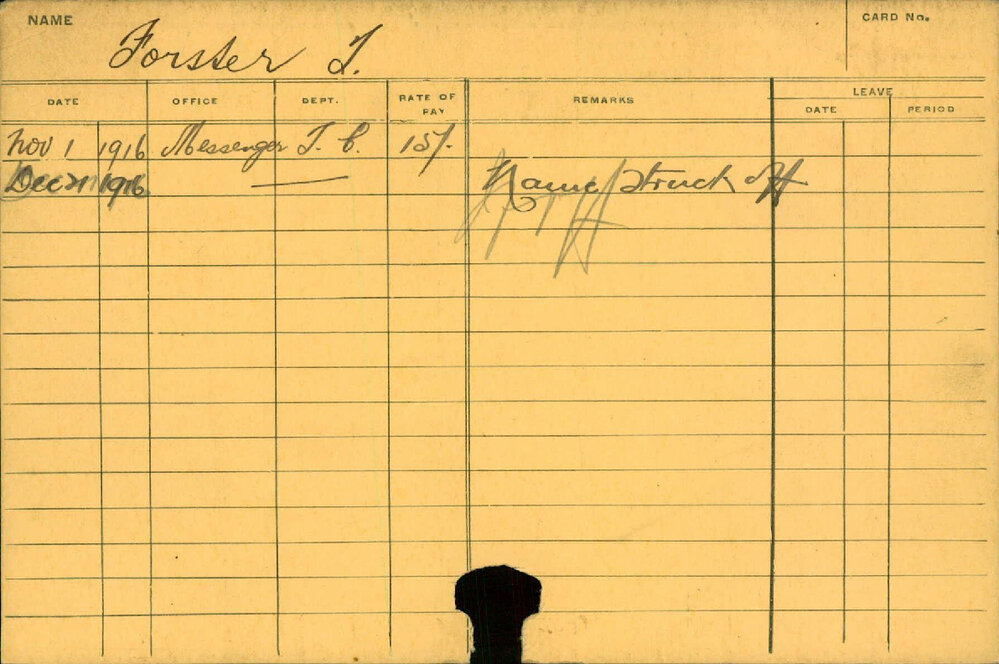 NAME Forster T. CARD No.
DATE OFFICE DEPT. RATE OF PAY REMARKS LEAVE
DATE PERIOD
Nov 1 1916 Messenger T. C. 15/.
Dec 1916 Name struck off